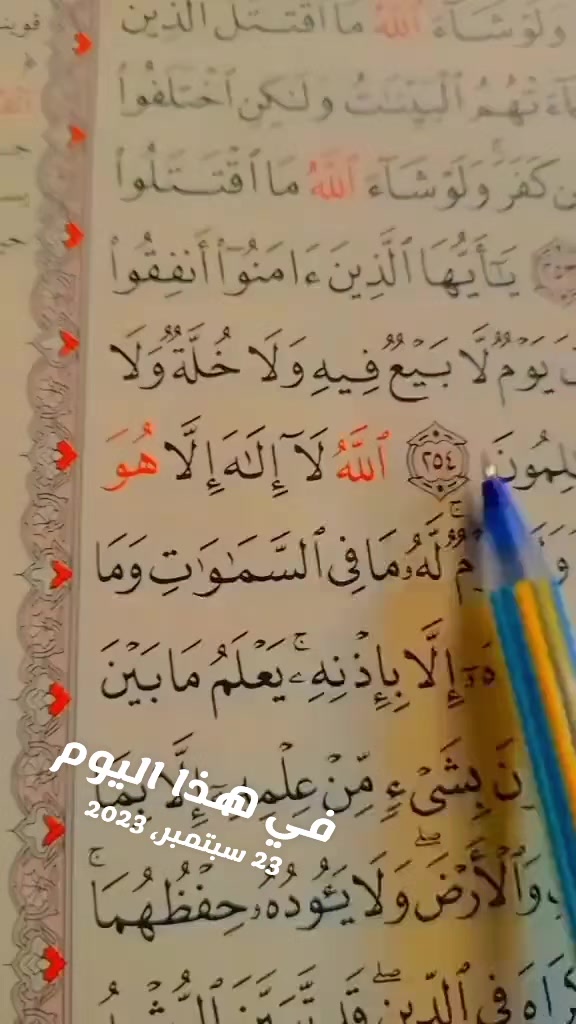 وَلَوْ شَآءَ ٱللَّهُ مَا ٱقْتَتَلَ ٱلَّذِينَ
ٱلْبَيِّنَـٰتُ وَلَـٰكِنِ ٱخْتَلَفُوا۟
كَفَرَ ۚ وَلَوْ شَآءَ ٱللَّهُ مَا ٱقْتَتَلُوا۟
٢٥٣ يَـٰٓأَيُّهَا ٱلَّذِينَ ءَامَنُوٓا۟ أَنفِقُوا۟
يَوْمٌ لَّا بَيْعٌ فِيهِ وَلَا خُلَّةٌ وَلَا
٢٥٤ ٱللَّهُ لَآ إِلَـٰهَ إِلَّا هُوَ
لَّهُۥ مَا فِى ٱلسَّمَـٰوَٰتِ وَمَا
إِلَّا بِإِذْنِهِۦ ۚ يَعْلَمُ مَا بَيْنَ
بِشَىْءٍ مِّنْ عِلْمِهِۦٓ إِلَّا بِمَا
في هذا اليوم
23 سبتمبر، 2023
وَٱلْأَرْضَ ۖ وَلَا يَـُٔودُهُۥ حِفْظُهُمَا ۚ
فِى ٱلدِّينِ ۖ قَد تَّبَيَّنَ ٱلرُّشْدُ